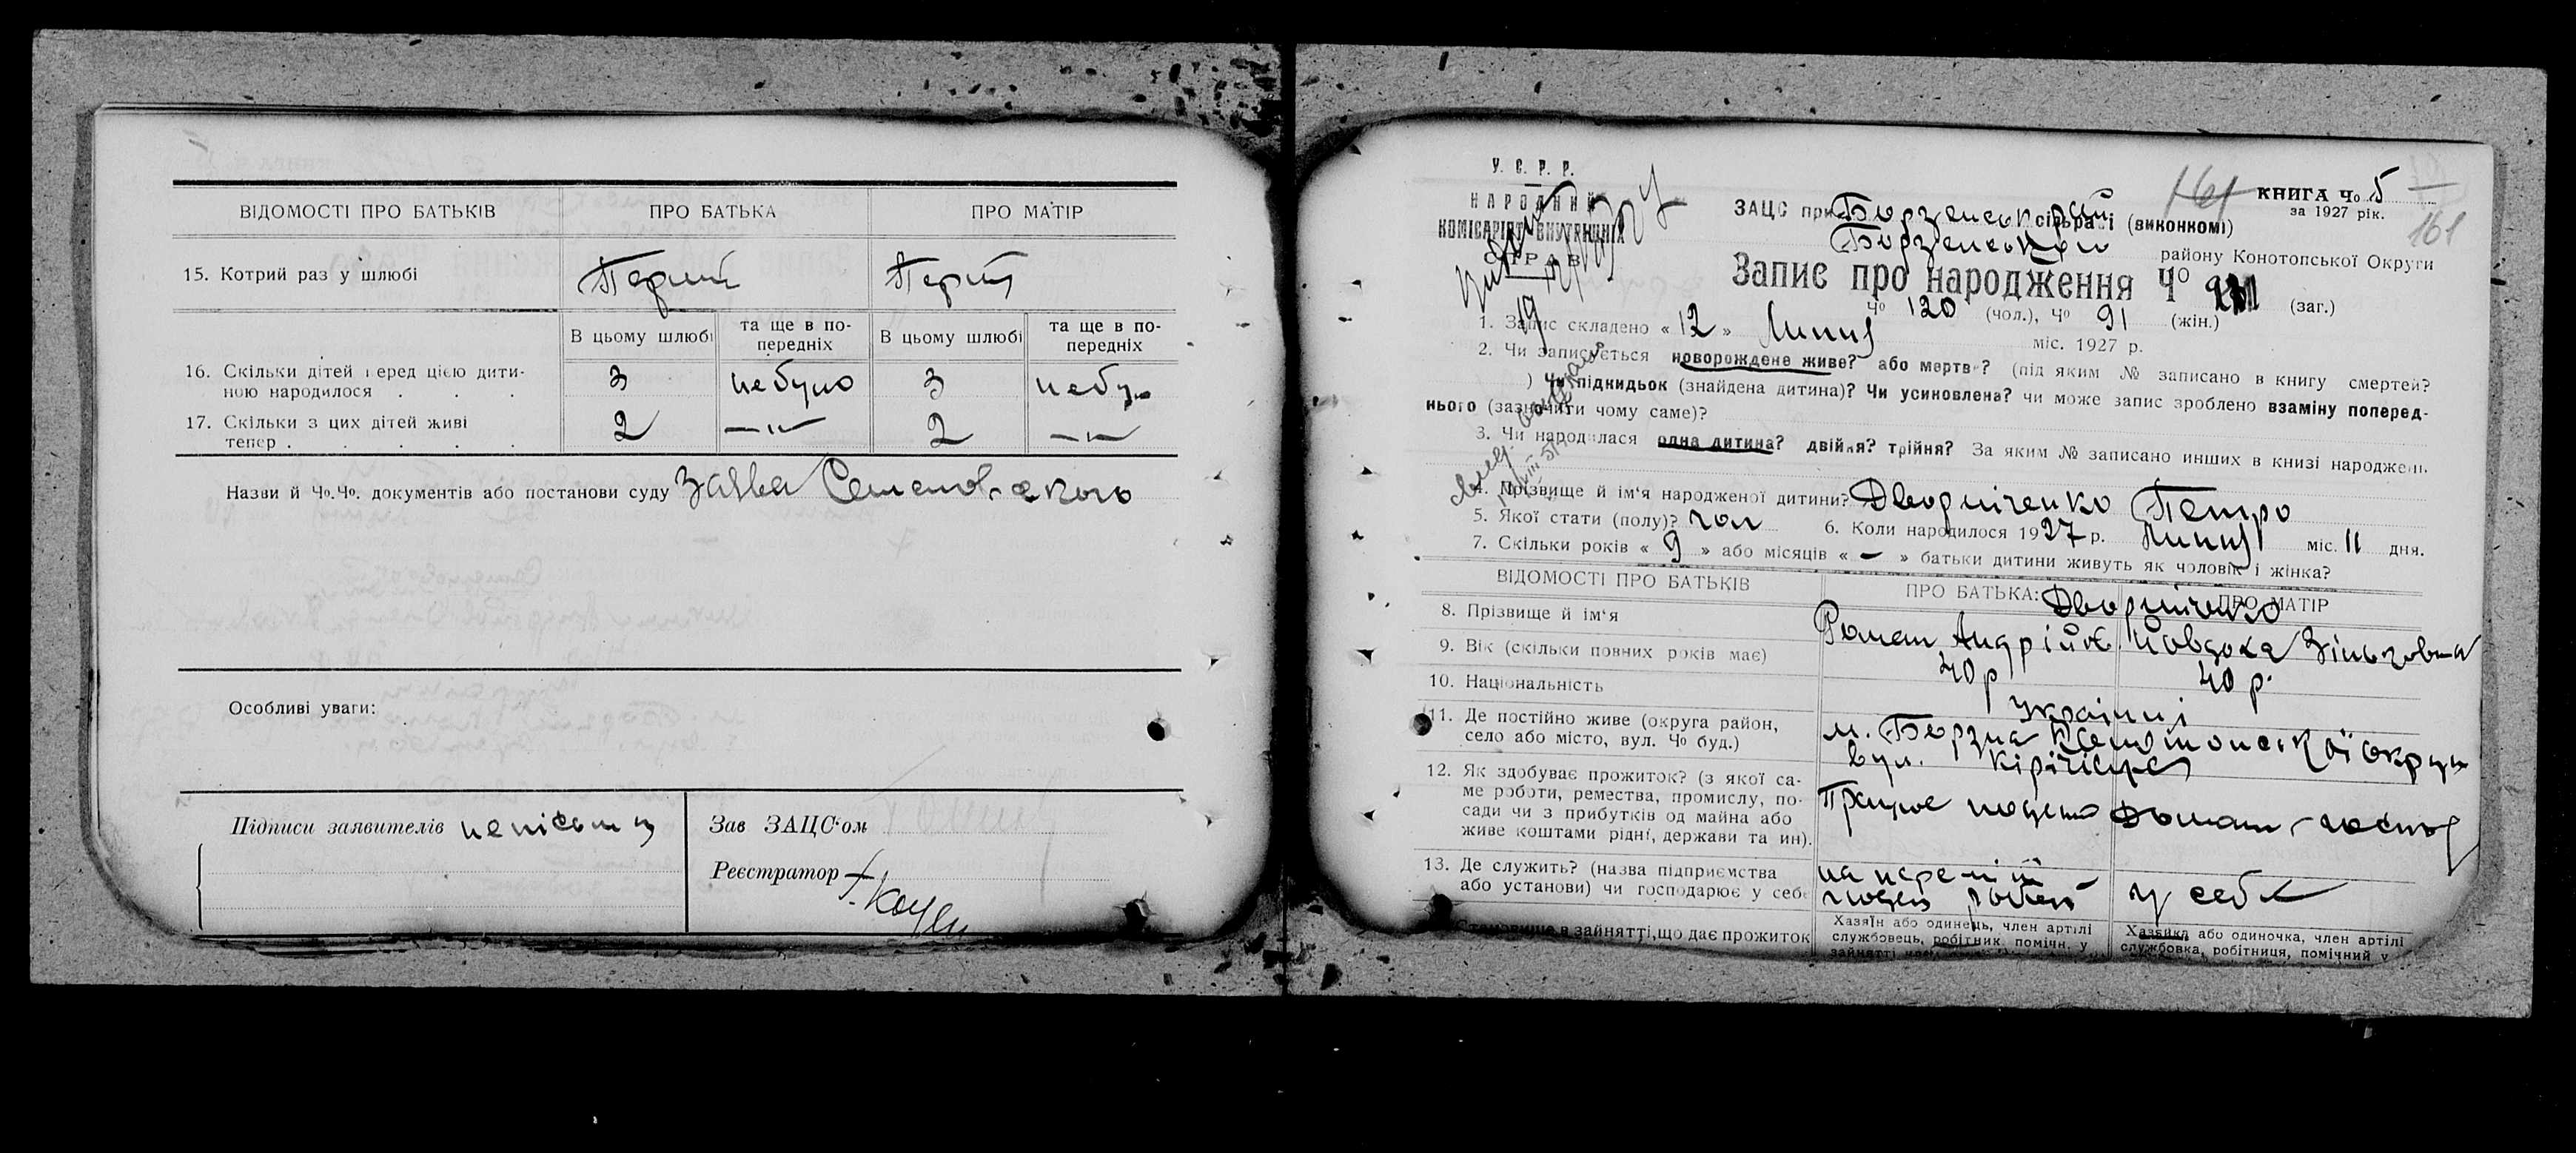 ВІДОМОСТІ ПРО БАТЬКІВ ПРО БАТЬКА ПРО МАТІР
15. Котрий раз у шлюбі Перший Перший
В цьому шлюбі та ще в по-передніх В цьому шлюбі та ще в по-передніх
16. Скільки дітей перед цією дити-
ною народилося . . . 3 небуло 3 небул
17. Скільки з цих дітей живі
тепер . . . . . 2 —"— 2 —"—
Назви й Чо.Чо. документів або постанови суду Заява
Особливі уваги:
Підписи заявителів неписьмен
Зав ЗАЦС'ом
Реєстратор
У. С. Р. Р.
НАРОДНИЙ
КОМІСАРІЯТ ВНУТРІШНІХ
СПРАВ
КНИГА Чо 5
за 1927 рік.
161
161
ЗАЦС при Борзенськ сільраді (виконкомі)
Борзенськом району Конотопської Округи
Запис про народження Чо
(заг.)
Чо 120 (чол.), Чо 91 (жін.)
1. Запис складено « 12 » Липня міс. 1927 р.
2. Чи записується новорождене живе? або мертве? (під яким № записано в книгу смертей?
) Чи підкидьок (знайдена дитина)? Чи усиновлена? чи може запис зроблено взаміну поперед-
нього (зазначити чому саме)?
3. Чи народилася одна дитина? двійня? трійня? За яким № записано инших в книзі народжень
4. Прізвище й ім'я народженої дитини? Дворніченко Петро
5. Якої стати (полу)? чол 6. Коли народилося 1927 р. Липня міс. 11 дня.
7. Скільки років « 9 » або місяців « – » батьки дитини живуть як чоловік і жінка?
ВІДОМОСТІ ПРО БАТЬКІВ ПРО БАТЬКА: ПРО МАТІР
Дворніченко
8. Прізвище й ім'я Роман Андрійов. Йовдоха
9. Вік (скільки повних років має) 40 р 40 р.
10. Національність Українці
11. Де постійно живе (округа район,
село або місто, вул. Чо буд.) м. Борзна Конотопської округи
вул.
12. Як здобуває прожиток? (з якої са-
ме роботи, ремества, промислу, по-
сади чи з прибутків од майна або
живе коштами рідні, держави та ин). Працює Домаш. господ
13. Де служить? (назва підприємства
або установи) чи господарює у себе у себе
Становище в зайнятті, що дає прожиток
Хазяїн або одинець, член артілі
службовець, робітник, помічн. у
Хазяйка або одиночка, член артілі
службовка, робітниця, помічний у